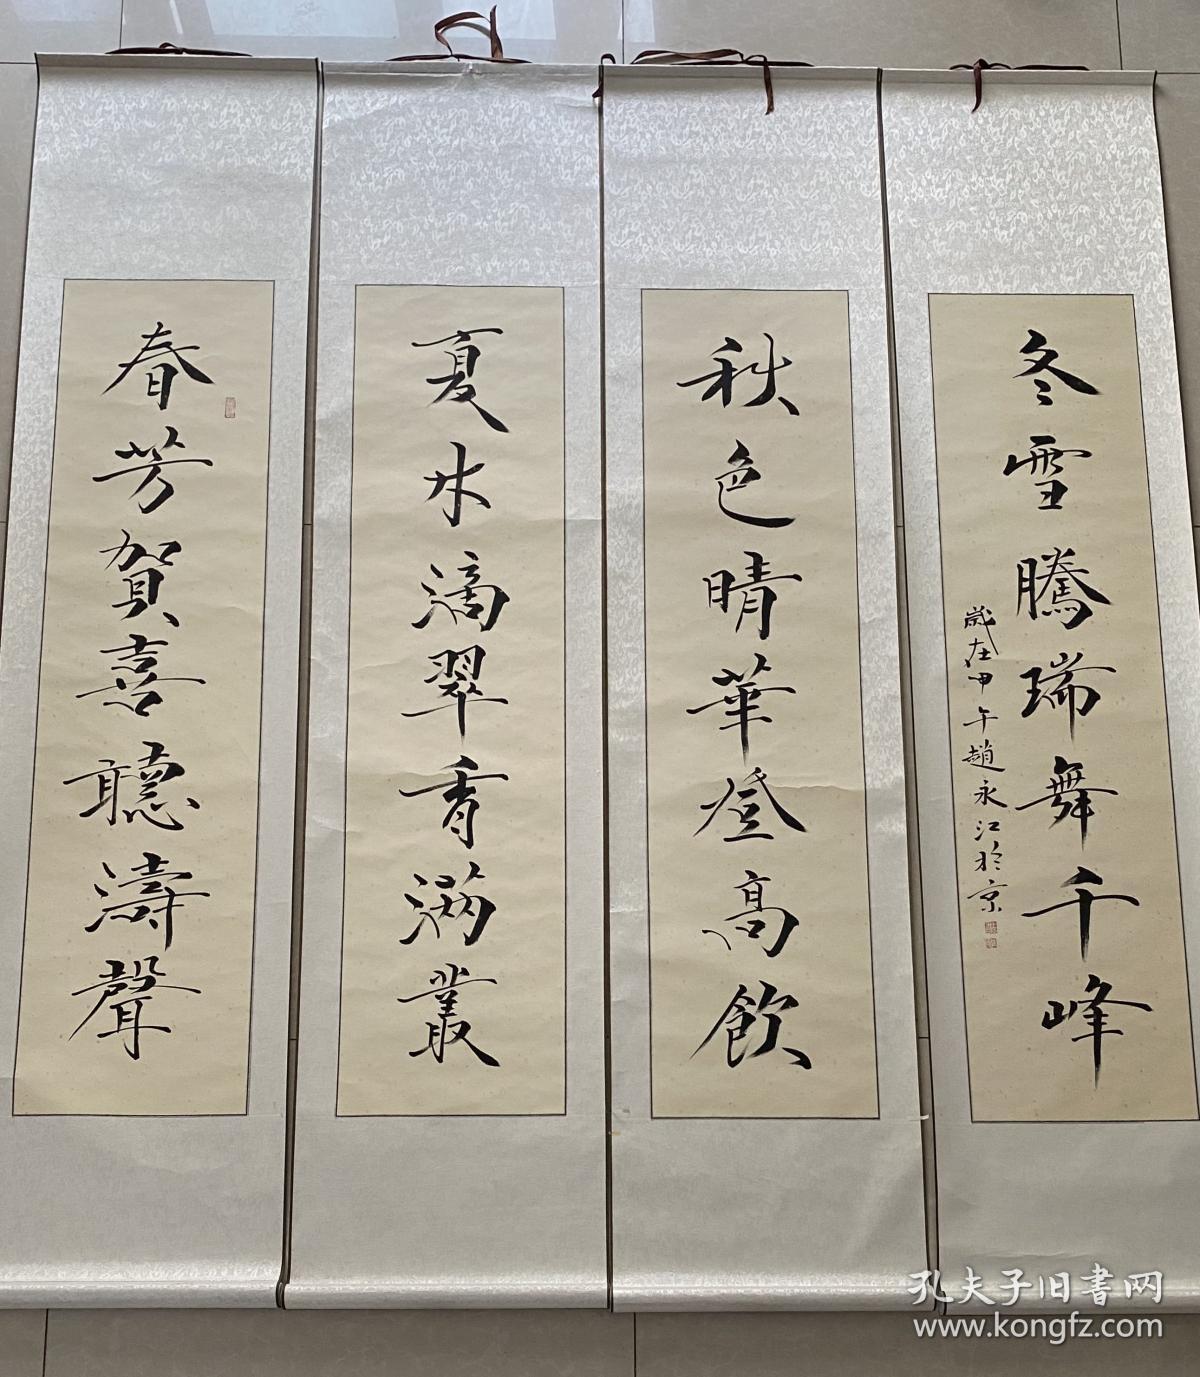 春芳賀喜聽濤聲
夏木滴翠香滿叢
秋色晴華登高飲
冬雪騰瑞舞千峰
歲在甲午趙永江於京
孔夫子旧书网
www.kongfz.com